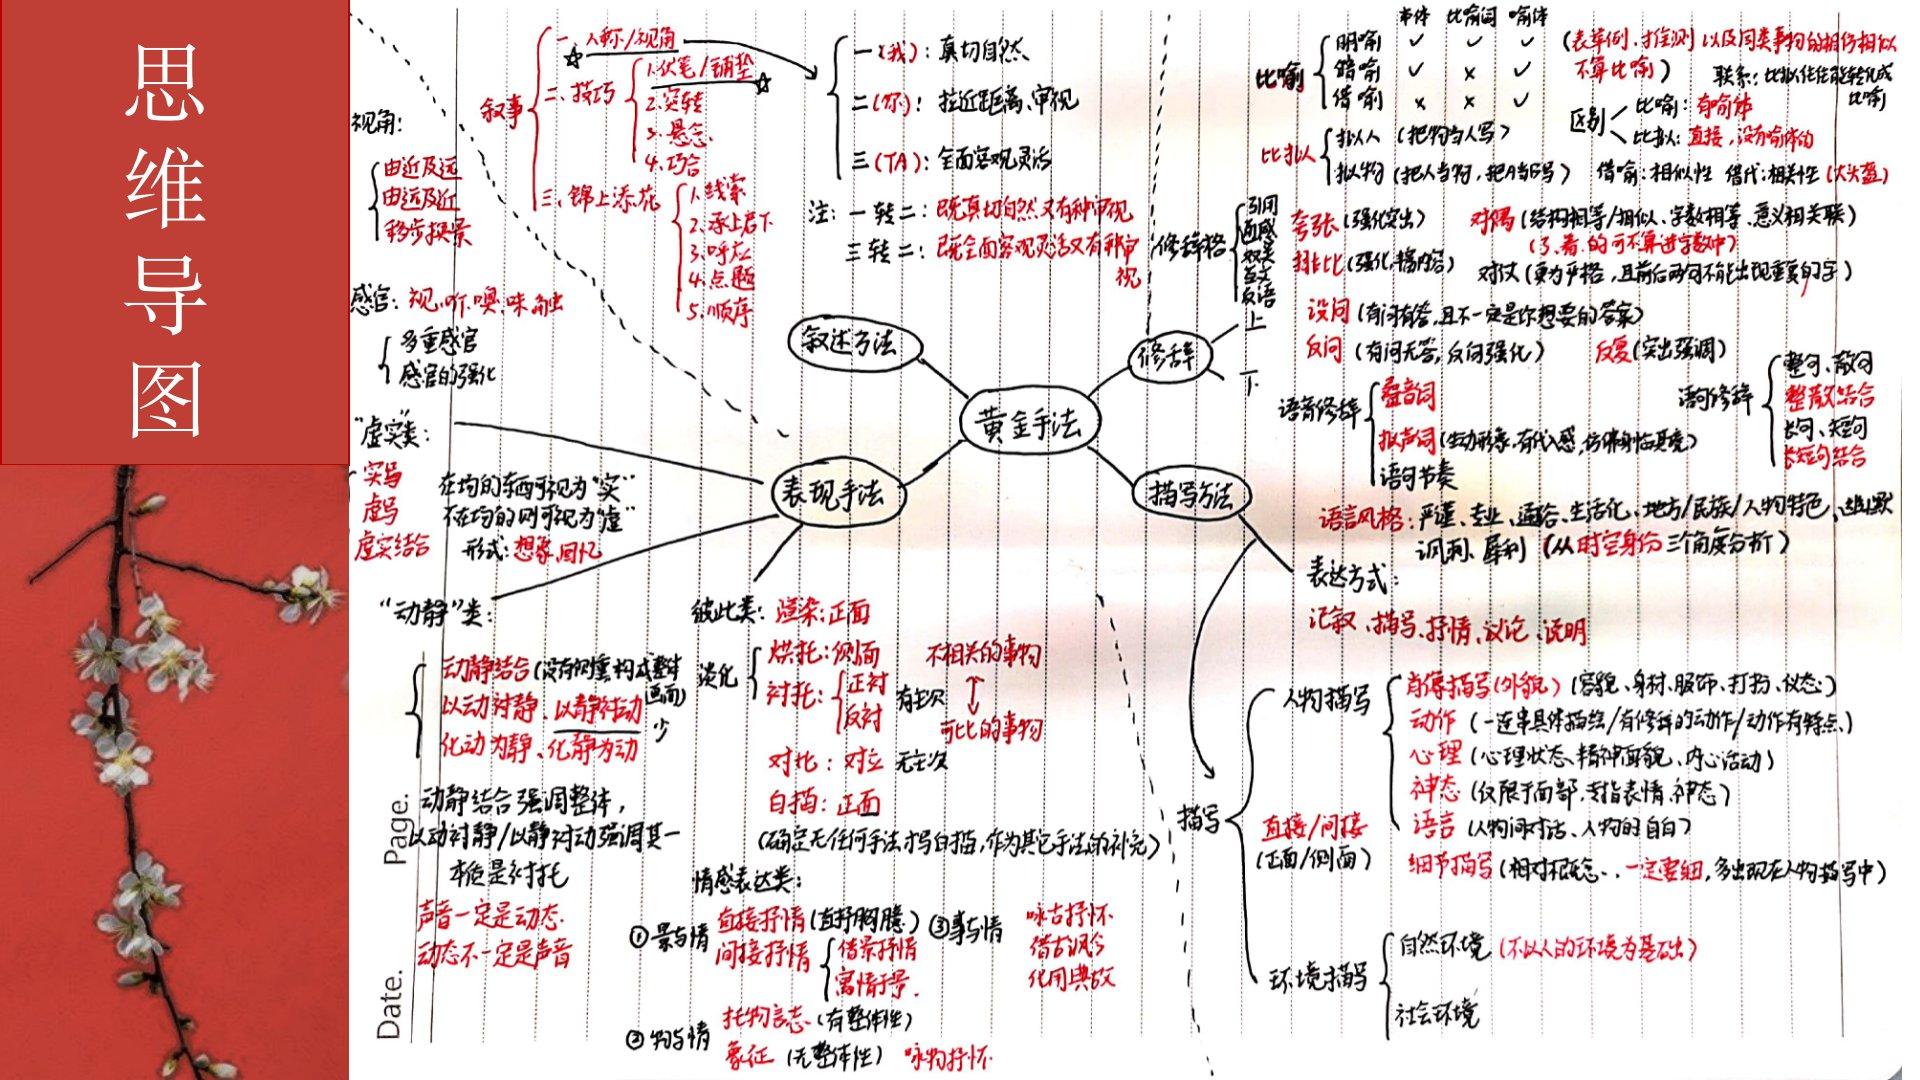 思维导图
黄金手法
叙述方法
叙事
一、人称/视角
二、技巧
1.伏笔/铺垫
2.突转
3.悬念
4.巧合
三、锦上添花
1.线索
2.承上启下
3.呼应
4.点题
5.顺序
一(我)：真切自然
二(你)：拉近距离、审视
三(TA)：全面客观灵活
注：一转二：既真切自然又有种审视
三转二：既全面客观灵活又有种审视
视角：
由近及远
由远及近
移步换景
感官：视、听、嗅、味、触
多重感官
感官的强化
修辞
上
下
修辞格
引用
通感
双关
互文
反语
本体 比喻词 喻体
比喻
明喻 ✓ ✓ ✓
暗喻 ✓ × ✓
借喻 × × ✓
(表举例、推测 以及同类事物的相仿相似
不算比喻)
联系：比拟往往能转化成比喻
区别
比喻：有喻体
比拟：直接，没有喻体的
比拟
拟人 (把物当人写)
拟物 (把人当物，把A当B写)
借喻：相似性 借代：相关性 (大头盔)
夸张 (强化突出)
对偶 (结构相等/相似、字数相等、意义相关联)
(了、着、的可不算进字数中)
排比 (强化，丰富内容)
对仗 (更为严格，且前后两句不能出现重复的字)
设问 (有问有答，且不一定是你想要的答案)
反问 (有问无答，反问强化)
反复 (突出强调)
语音修辞
叠音词
拟声词 (生动形象，有代入感，仿佛身临其境)
语句节奏
语句修辞
整句、散句
整散结合
长句、短句
长短句结合
语言风格：严谨、专业、通俗、生活化、地方/民族/人物特色、幽默
讽刺、犀利 (从时空身份三个角度分析)
表现手法
"虚实类"：
实写
虚写
虚实结合
在均的东西可视为"实"
不在均的则可视为"虚"
形式：想象、回忆
"动静"类：
动静结合 (没有侧重构成整体画面)
以动衬静、以静衬动
化动为静、化静为动
少
动静结合强调整体，
以动衬静/以静衬动强调其一
本质是衬托
声音一定是动态
动态不一定是声音
彼此类：渲染：正面
淡化
烘托：侧面
衬托：
正衬
反衬
有主次
不相关的事物
可比的事物
对比：对立 无主次
白描：正面
(确定无任何手法才写白描，作为其它手法的补充)
情感表达类：
①景与情
直接抒情 (直抒胸臆)
间接抒情
借景抒情
寓情于景.
②物与情
托物言志 (有整体性)
象征 (无整体性) 咏物抒怀
③事与情
咏古抒怀
借古讽今
化用典故
描写方法
表达方式：
记叙、描写、抒情、议论、说明
描写
直接/间接
(正面/侧面)
人物描写
肖像描写(外貌) (容貌、身材、服饰、打扮、仪态)
动作 (一连串具体描绘/有修辞的动作/动作有特点)
心理 (心理状态、精神面貌、内心活动)
神态 (仅限于面部，专指表情、神态)
语言 (人物间对话、人物的自白)
细节描写 (相对概念..一定要细，多出现在人物描写中)
环境描写
自然环境 (不以人的环境为基础)
社会环境
Page.
Date.